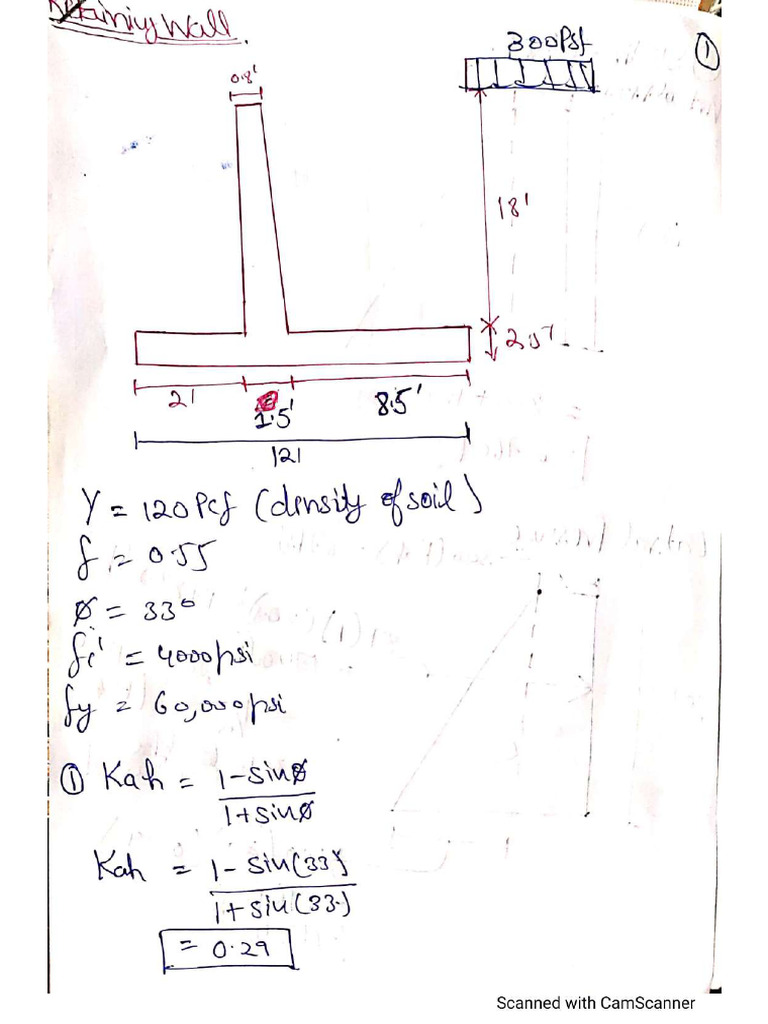 Retaining Wall.
300Psf
1
0.8'
18'
2.0'
2'
1.5'
8.5'
12'
γ = 120 Pcf (density of soil)
f = 0.55
Ø = 33°
fc' = 4000psi
fy = 60,000psi
① Kah = 1-sinØ
1+sinØ
Kah = 1- sin(33)
1+sin(33)
= 0.29
Scanned with CamScanner